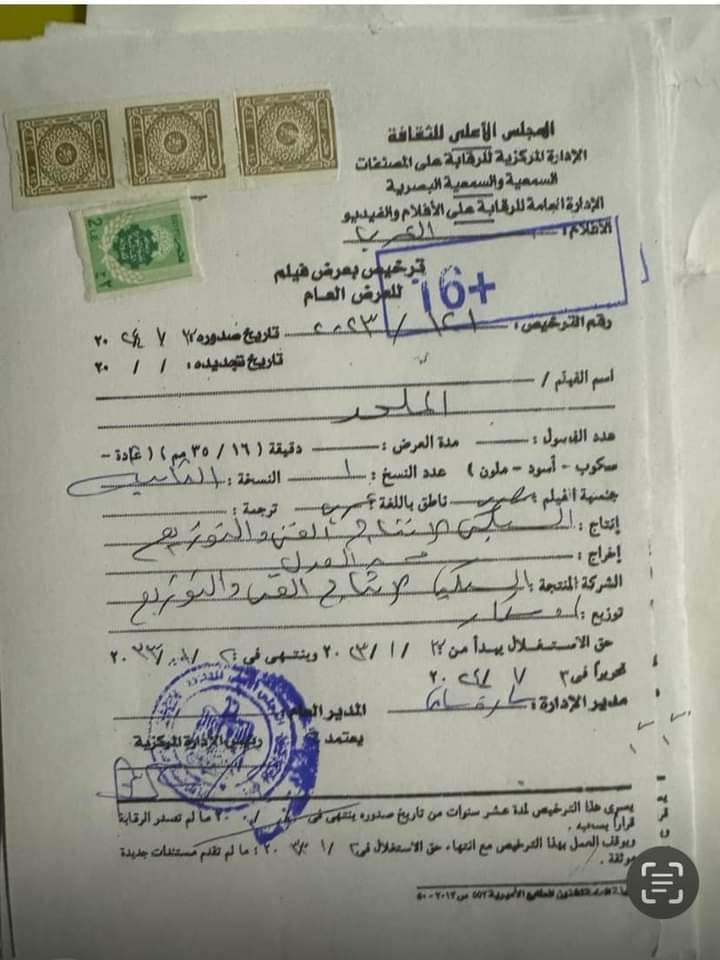 المجلس الأعلى للثقافة
الإدارة المركزية للرقابة على المصنفات
السمعية والسمعية البصرية
الإدارة العامة للرقابة على الأفلام والفيديو
الأفلام: العربى
ترخيص بعرض فيلم
للعرض العام
16+
رقم الترخيص: ١٢١ / ٢٠٢٣ تاريخ صدوره ٧ ٢٠٢٤
تاريخ تجديده: / / ٢٠
اسم الفيلم /
الملحد
عدد الفصول: مدة العرض: دقيقة (١٦ / ٣٥ مم) (عادة -
سكوب - أسود - ملون) عدد النسخ: ١ النسخة:
جنسية الفيلم: مصرى ناطق باللغة: عربى ترجمة:
إنتاج: السبكى للإنتاج الفنى والتوزيع
إخراج: محمد العدل
الشركة المنتجة: السبكى للإنتاج الفنى والتوزيع
توزيع:
حق الاستغلال يبدأ من / ١ / ٢٠٢٣ وينتهى فى: ٢٠٣٣
تحريراً فى ٣ ٧ ٢٠٢٤
مدير الإدارة: المدير العام:
يعتمد، رئيس الإدارة المركزية
يسرى هذا الترخيص لمدة عشر سنوات من تاريخ صدوره ينتهى فى / / ٢٠ ما لم تصدر الرقابة
قراراً بسحبه.
ويوقف العمل بهذا الترخيص مع انتهاء حق الاستغلال فى ما لم تقدم مستندات جديدة
موثقة.
الأميرية ٥٥٢ س ٢٠١٢ - ٥٠